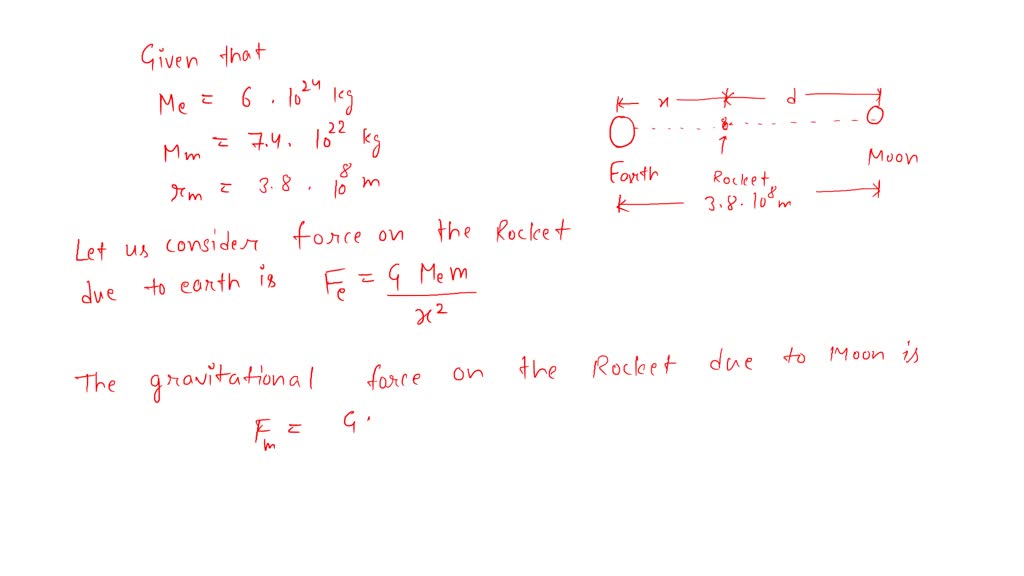 Given that
Me = 6 . 10^24 kg
Mm = 7.4 . 10^22 kg
rm = 3.8 . 10^8 m
x d
Earth Rocket Moon
3.8 . 10^8 m
Let us consider force on the Rocket
due to earth is Fe = G Me m / x^2
The gravitational force on the Rocket due to Moon is
Fm = G .